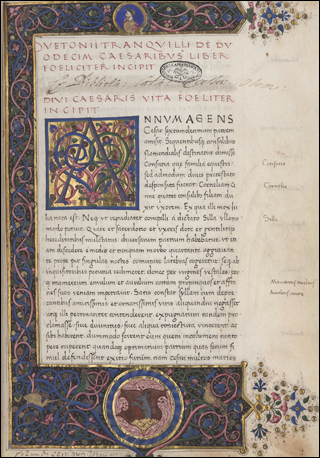 SVETONII TRANQVILLI DE DV
ODECIM CAESARIBVS LIBER
FOELICITER INCIPIT
DIVI CAESARIS VITA FOELITER
INCIPIT
NNVM AGENS
Cesar sextumdecimum patrem
amisit. Sequentibusque consulibus
flamendialis destinatus dimissa
Cossutia que familia equestri
sed admodum diues pretextato
desponsata fuerat: Corneliam Cin
ne quater consulis filiam du
xit uxorem. Ex qua illi mox Iu
lia nata est. Neque ut repudiaret compelli a dictatore Silla ullo
modo potuit. Quare et sacerdotio et uxoris dote et gentilitiis
hereditatibus multatus diuersarum partium habebatur. ut et
iam discedere e medio et morbo quartane aggrauan
te prope per singulas noctes commutare latebras cogeretur: seque ab
inquisitoribus pecunia redimeret: donec per uirgines uestales. per
que mamercum emilium et aurelium cottam propinquos et affi
nes suos ueniam impetrauit. Satis constat sillam cum depre
cantibus amicissimis et ornatissimis uiris aliquandiu negasset
atque illi pertinaciter contenderent: expugnatum tandem pro
clamasse: siue diuinitus: siue aliqua coniectura: uincerent ac
sibi haberent. dummodo scirent eum quem incolumem tanto
pere cuperent quandoque optimatium partium quas secum si
mul defendissent exitio futurum. nam cesari multos marios
Cossutia
Cornelia
Silla
Mamercus emilius
Aurelius cotta